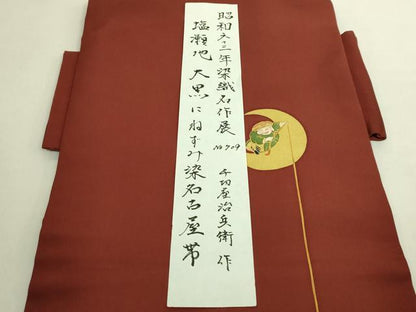 昭和五十三年染織名作展
No 709 千切屋治兵衛 作
塩瀬地 大黒にねずみ染名古屋帯